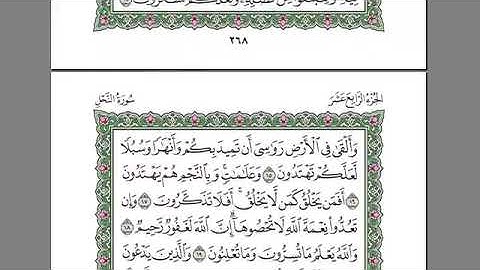 ٢٦٨
الجزء الرابع عشر
سورة النحل
وَأَلْقَىٰ فِي ٱلْأَرْضِ رَوَٰسِىَ أَن تَمِيدَ بِكُمْ وَأَنْهَٰرًا وَسُبُلًا
لَّعَلَّكُمْ تَهْتَدُونَ ١٥ وَعَلَٰمَٰتٍ ۚ وَبِٱلنَّجْمِ هُمْ يَهْتَدُونَ
١٦ أَفَمَن يَخْلُقُ كَمَن لَّا يَخْلُقُ ۗ أَفَلَا تَذَكَّرُونَ ١٧ وَإِن
تَعُدُّوا۟ نِعْمَةَ ٱللَّهِ لَا تُحْصُوهَآ ۗ إِنَّ ٱللَّهَ لَغَفُورٌ رَّحِيمٌ ١٨
وَٱللَّهُ يَعْلَمُ مَا تُسِرُّونَ وَمَا تُعْلِنُونَ ١٩ وَٱلَّذِينَ يَدْعُونَ